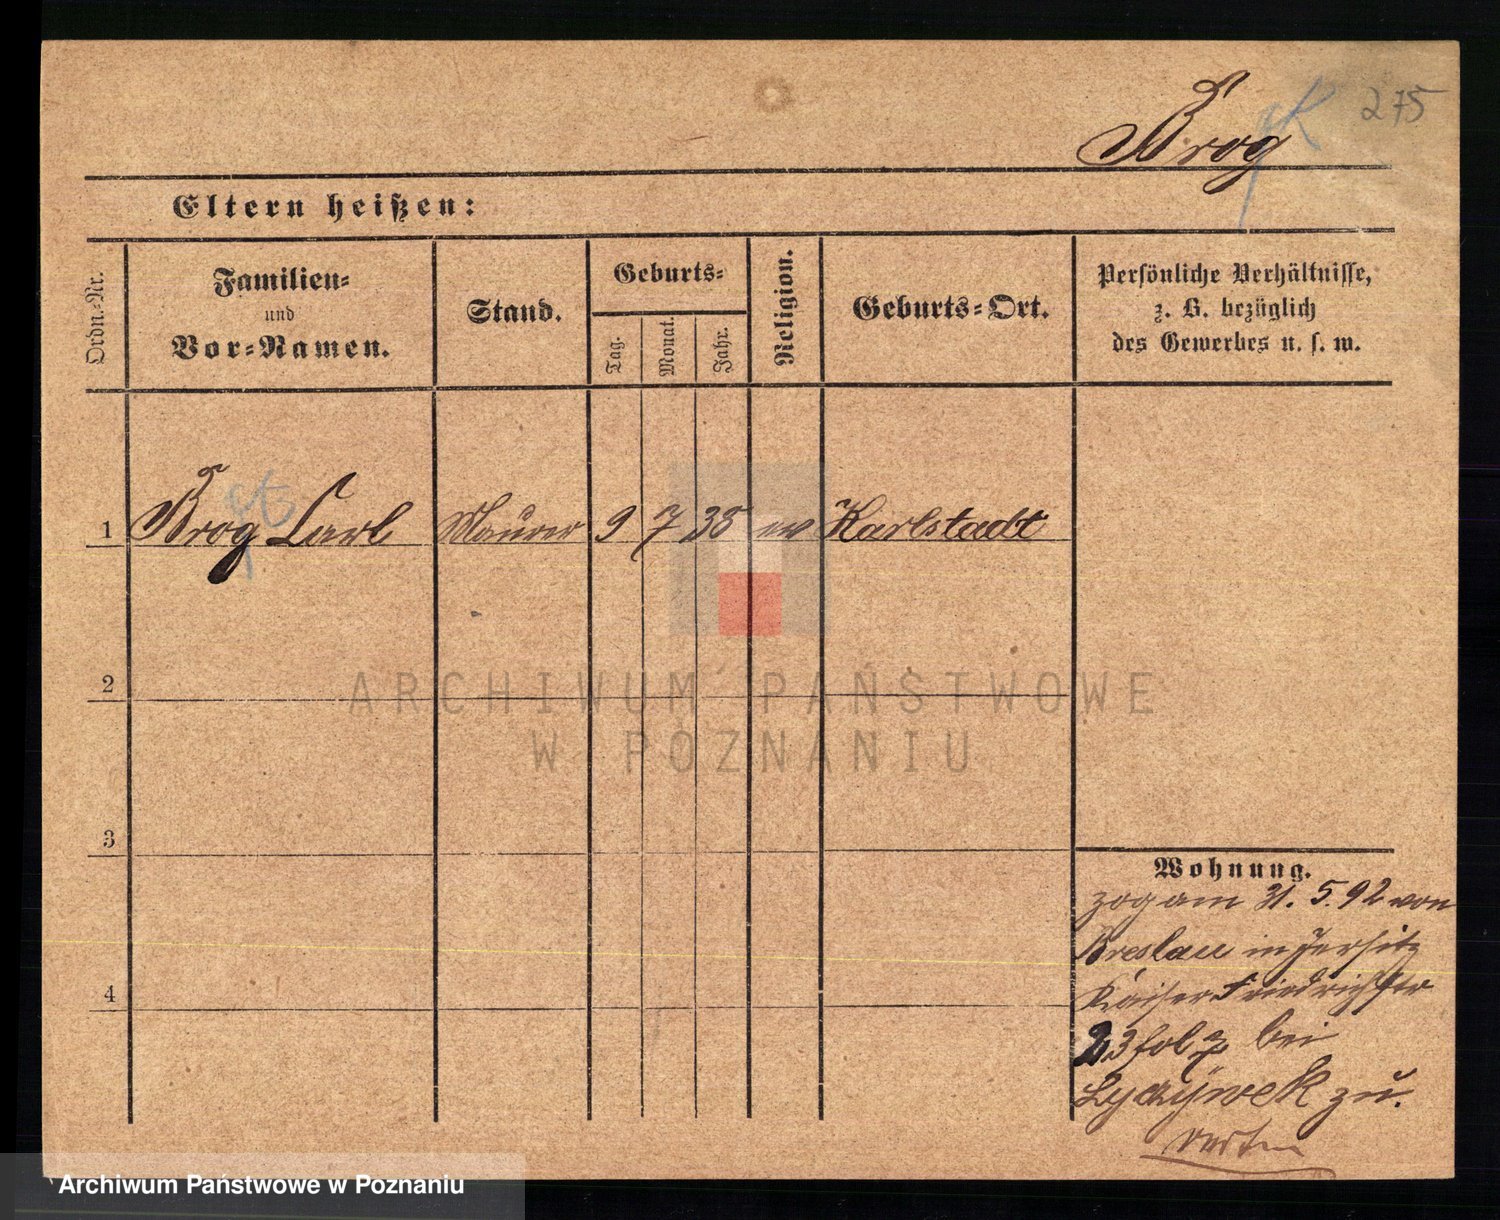 275
Brog
Eltern heißen:
Ordn.-Nr.
Familien-
und
Vor-Namen.
Stand.
Geburts-
Tag.
Monat.
Jahr.
Religion.
Geburts-Ort.
Persönliche Verhältnisse,
z. B. bezüglich
des Gewerbes u. s. w.
1 Brog Carl Maurer 9 7 35 ev Karlstadt
2
3
4
Wohnung.
zog am 31. 5. 92 von
Breslau in Jersitz
Kaiser Friedrichstr
23 fol 7 bei
zu.
ARCHIWUM PAŃSTWOWE
W POZNANIU
Archiwum Państwowe w Poznaniu